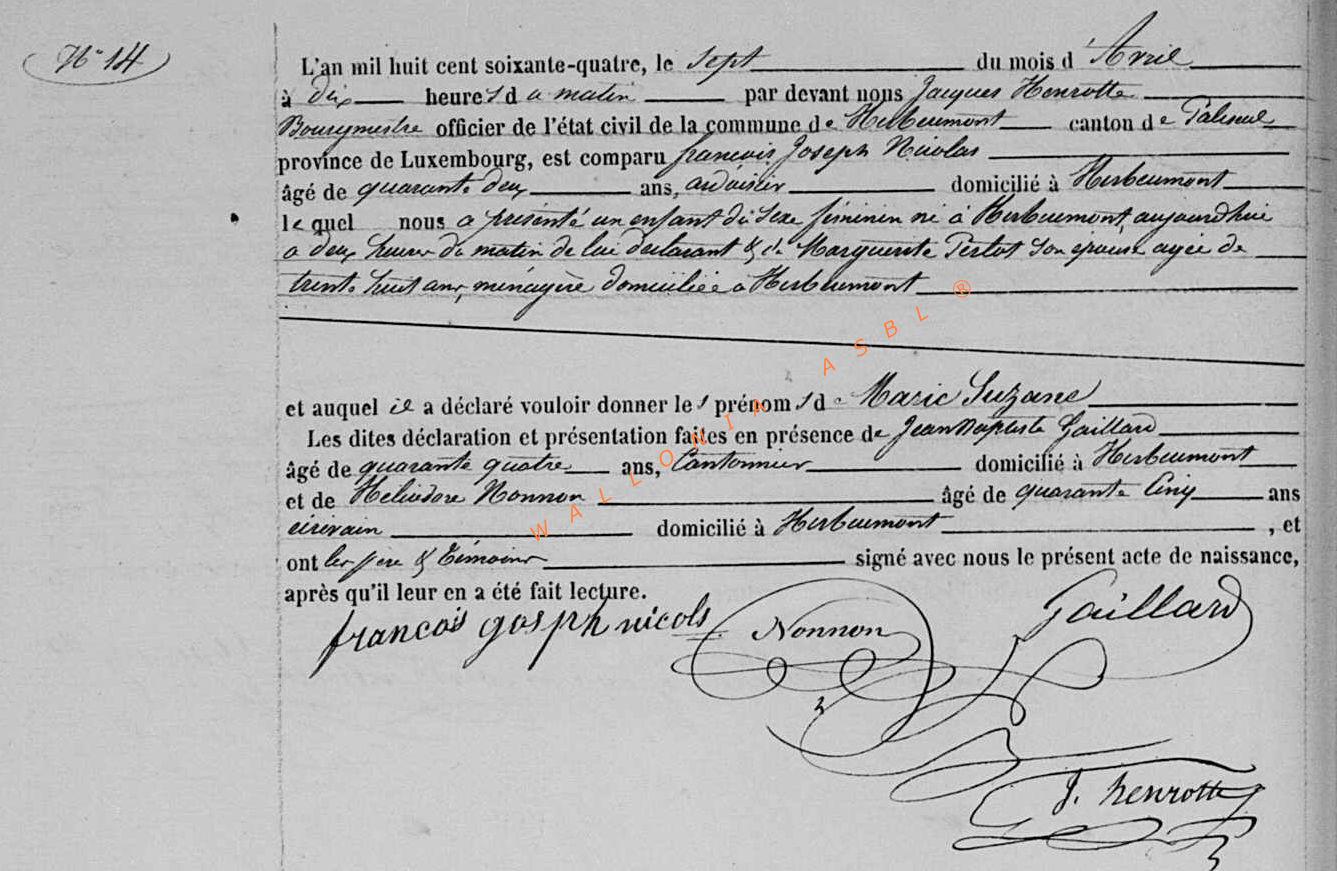 N° 14
L'an mil huit cent soixante-quatre, le sept du mois d'Avril
à dix heures du matin par devant nous Jacques Henrotte
Bourgmestre officier de l'état civil de la commune de Herbeumont canton de Paliseul
province de Luxembourg, est comparu francois Joseph Nicolas
âgé de quarante deux ans, ardoisier domicilié à Herbeumont
lequel nous a présenté un enfant du sexe féminin né à Herbeumont, aujourdhui
a deux heures du matin de lui declarant & de Marguerite Perlot son épouse agée de
trente huit ans, ménagère domiciliée à Herbeumont
et auquel il a déclaré vouloir donner les prénoms de Marie Suzane
Les dites déclaration et présentation faites en présence de Jean Baptiste Gaillard
âgé de quarante quatre ans, Cantonnier domicilié à Herbeumont
et de Héliodore Nonnon âgé de quarante Cinq ans
écrivain domicilié à Herbeumont, et
ont les père & Témoins signé avec nous le présent acte de naissance,
après qu'il leur en a été fait lecture.
francois gosph nicols Nonnon Gaillard
J. henrotte
WALLONIA ASBL ®